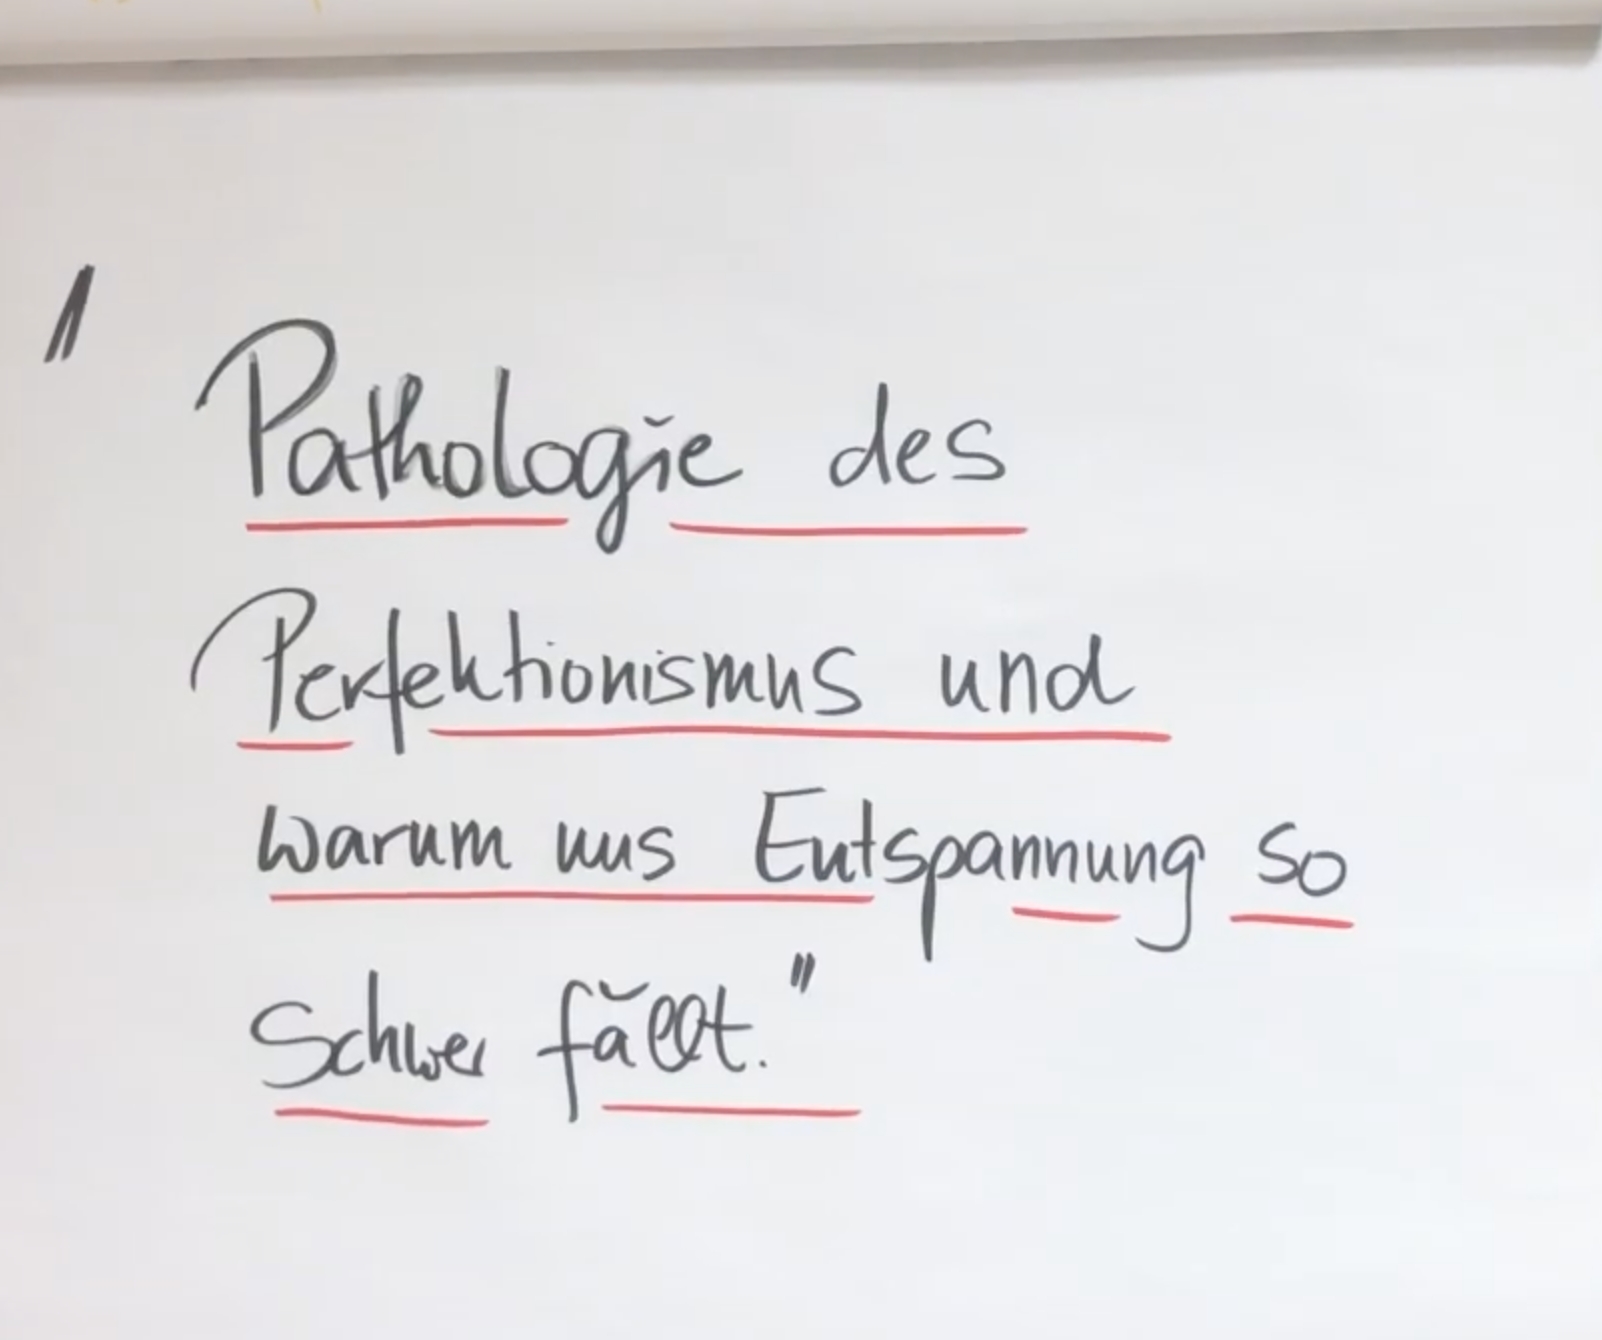 "Pathologie des
Perfektionismus und
warum uns Entspannung so
Schwer fällt."